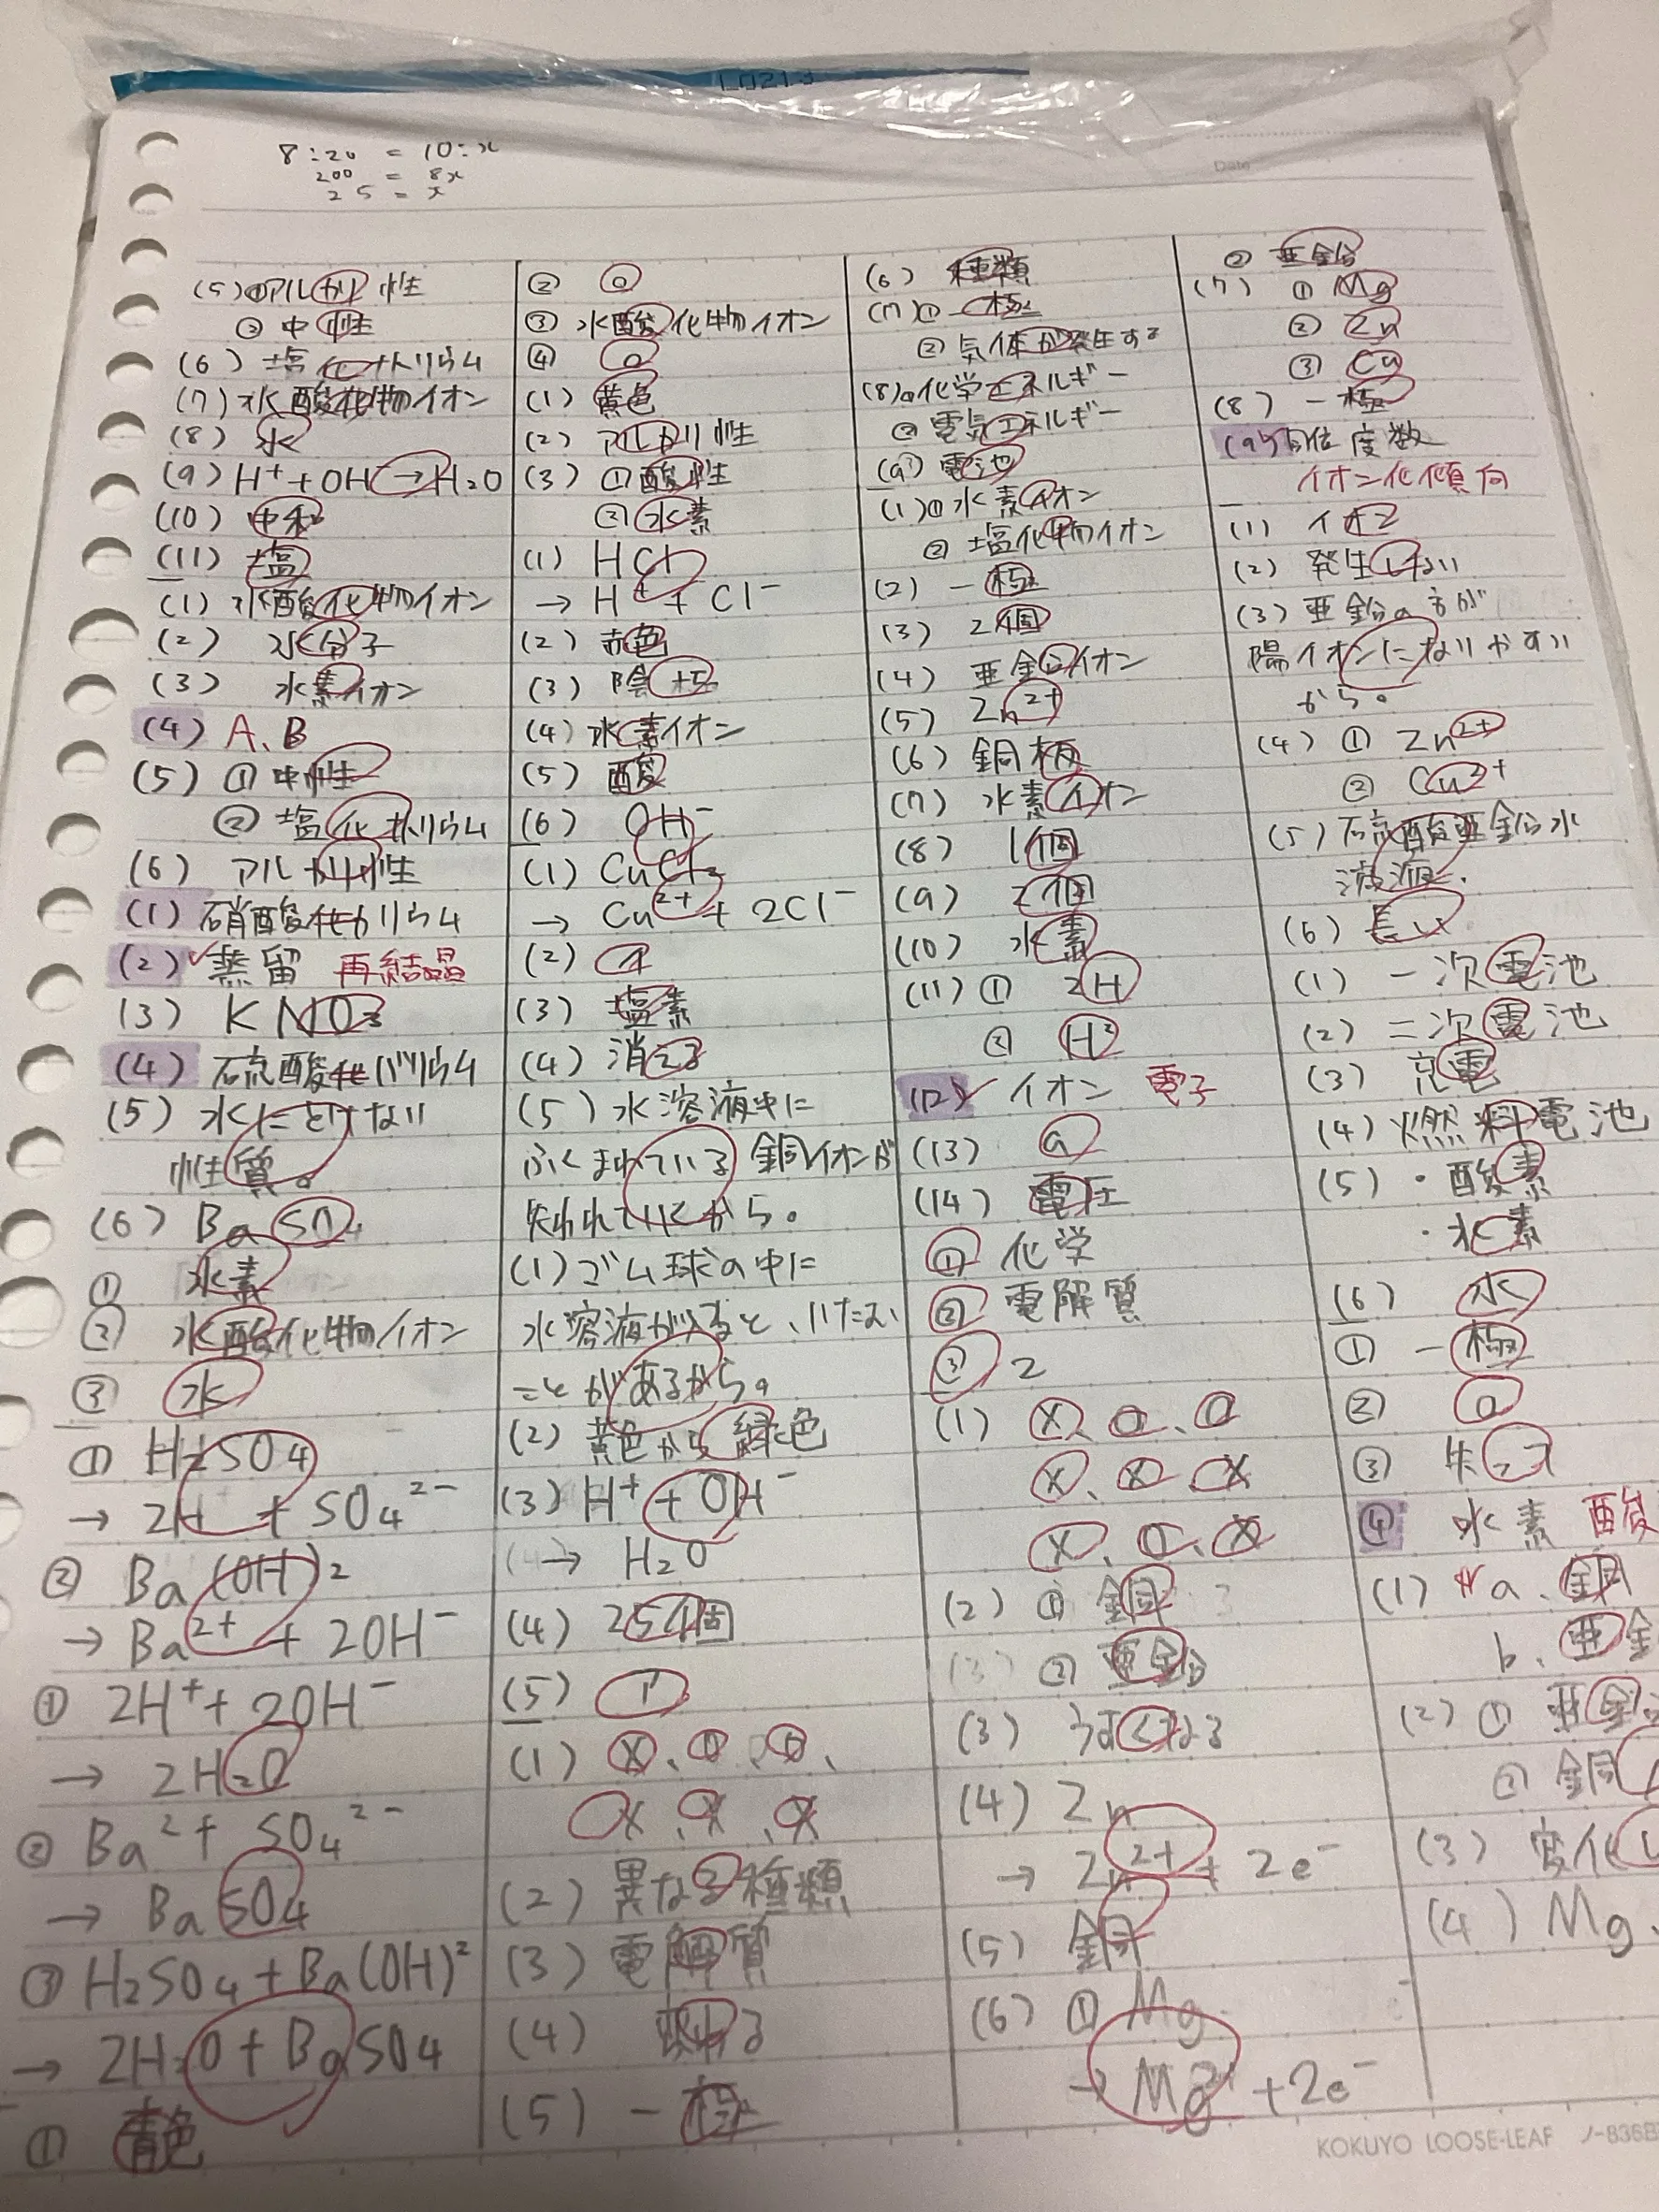 L0213
8:20 = 10:x
200 = 8x
25 = x
Date
(5) ①アルカリ性
② 中性
(6) 塩化ナトリウム
(7) 水酸化物イオン
(8) 水
(9) H⁺+OH⁻→H₂O
(10) 中和
(11) 塩
(1) 水酸化物イオン
(2) 水分子
(3) 水素イオン
(4) A、B
(5) ① 中性
② 塩化ナトリウム
(6) アルカリ性
(1) 硝酸化カリウム
(2) 蒸留 再結晶
(3) KNO₃
(4) 硫酸化バリウム
(5) 水にとけない
性質。
(6) BaSO₄
① 水素
② 水酸化物イオン
③ 水
① H₂SO₄
→ 2H⁺ + SO₄²⁻
② Ba(OH)₂
→ Ba²⁺ + 2OH⁻
① 2H⁺+ 2OH⁻
→ 2H₂O
② Ba²⁺ SO₄²⁻
→ BaSO₄
③ H₂SO₄+Ba(OH)²
→ 2H₂O+BaSO₄
① 青色
②
③ 水酸化物イオン
④
(1) 黄色
(2) アルカリ性
(3) ① 酸性
② 水素
(1) HCl
→ H⁺ + Cl⁻
(2) 赤色
(3) 陰極
(4) 水素イオン
(5) 酸
(6) OH⁻
(1) CuCl₂
→ Cu²⁺ + 2Cl⁻
(2) イ
(3) 塩素
(4) 消える
(5) 水溶液中に
ふくまれている銅イオンが
失われていくから。
(1) ゴム球の中に
水溶液が入ると、いたむ
ことがあるから。
(2) 黄色から緑色
(3) H⁺ + OH⁻
→ H₂O
(4) 25個
(5)
(1) X、O、O、
X、X、X
(2) 異なる種類
(3) 電解質
(4) 現れる
(5) 一極
(6) 種類
(7)① 一極
② 気体が発生する
(8)① 化学エネルギー
② 電気エネルギー
(9) 電池
(1)① 水素イオン
② 塩化物イオン
(2) 一極
(3) 2個
(4) 亜鉛イオン
(5) Zn²⁺
(6) 銅板
(7) 水素イオン
(8) 1個
(9) 2個
(10) 水素
(11) ① 2H
② H²
(12) イオン 電子
(13) a
(14) 電圧
① 化学
② 電解質
③ 2
(1) X、O、O
X、X、X
X、O、X
(2) ① 銅
② 亜鉛
(3) うすくなる
(4) Zn
→ Zn²⁺ + 2e⁻
(5) 銅
(6) ① Mg
→ Mg²⁺ +2e⁻
② 亜鉛
(7) ① Mg
② Zn
③ Cu
(8) 一極
(9) 位度数
イオン化傾向
(1) イオン
(2) 発生しない
(3) 亜鉛の方が
陽イオンになりやすい
から。
(4) ① Zn²⁺
② Cu²⁺
(5) 硫酸亜鉛水
溶液
(6) 長い
(1) 一次電池
(2) 二次電池
(3) 充電
(4) 燃料電池
(5) ・酸素
・水素
(6) 水
① 一極
② a
③ 失う
④ 水素 酸
(1) a、銅
b、亜鉛
(2) ① 亜鉛
② 銅
(3) 変化
(4) Mg
KOKUYO LOOSE-LEAF ノ-836B